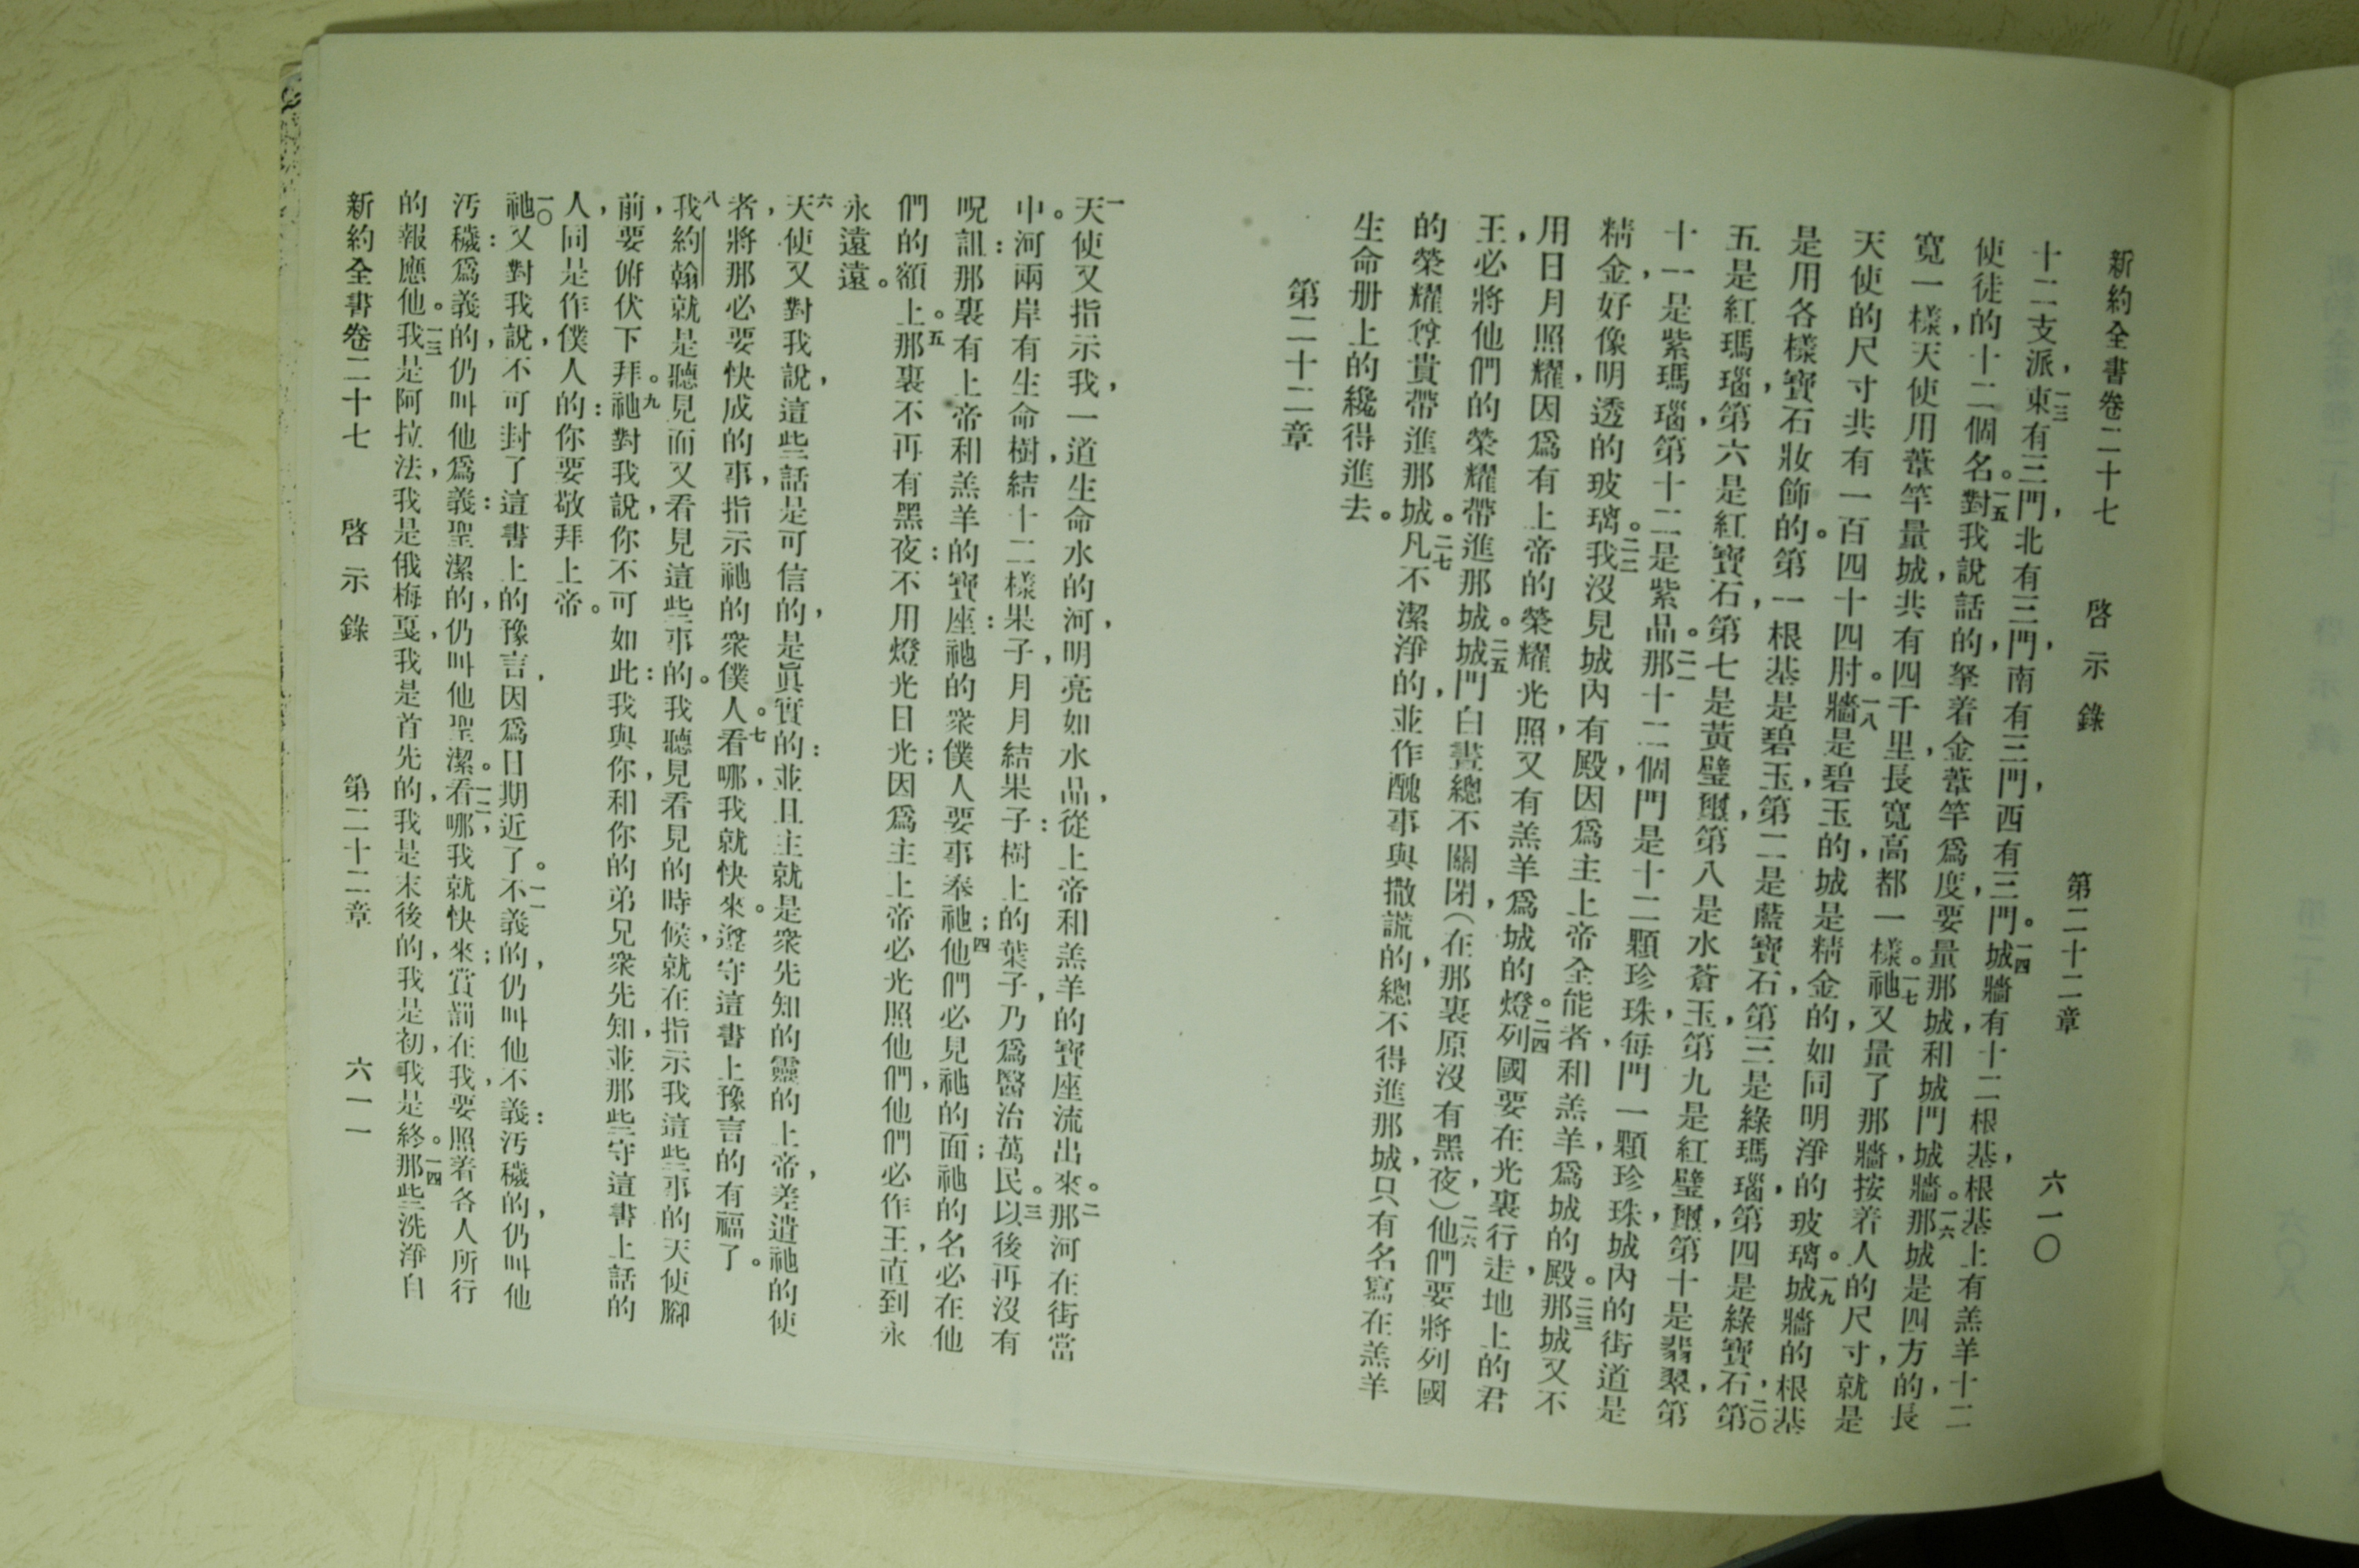 新約全書卷二十七 啓示錄 第二十二章 六一〇
十二支派，一三東有三門，北有三門，南有三門，西有三門。一四城牆有十二根基，根基上有羔羊十二
使徒的十二個名。一五對我說話的，拏着金葦竿爲度，要量那城，和城門城牆。一六那城是四方的，長
寬一樣，天使用葦竿量城，共有四千里，長寬高都一樣。一七祂又量了那牆，按着人的尺寸，就是
天使的尺寸共有一百四十四肘。一八牆是碧玉的，城是精金的，如同明淨的玻璃。一九城牆的根基
是用各樣寶石妝飾的。第一根基是碧玉，第二是藍寶石，第三是綠瑪瑙，第四是綠寶石，二〇第
五是紅瑪瑙，第六是紅寶石，第七是黃璧璽，第八是水蒼玉，第九是紅璧璽，第十是翡翠，第
十一是紫瑪瑙，第十二是紫品。二一那十二個門是十二顆珍珠，每門一顆珍珠，城內的街道是
精金，好像明透的玻璃。二二我沒見城內有殿，因爲主上帝全能者和羔羊，爲城的殿。二三那城又不
用日月照耀，因爲有上帝的榮耀光照，又有羔羊爲城的燈。二四列國要在光裏行走，地上的君
王，必將他們的榮耀帶進那城。二五城門白晝總不關閉，（在那裏原沒有黑夜）二六他們要將列國
的榮耀尊貴帶進那城。二七凡不潔淨的，並作醜事與撒謊的，總不得進那城，只有名寫在羔羊
生命册上的纔得進去。
第二十二章
一天使又指示我，一道生命水的河，明亮如水品，從上帝和羔羊的寶座流出來。二那河在街當
中。河兩岸有生命樹，結十二樣果子，月月結果子：樹上的葉子，乃爲醫治萬民。三以後再沒有
呪詛：那裏有上帝和羔羊的寶座：祂的衆僕人要事奉祂；四他們必見祂的面；祂的名必在他
們的額上。五那裏不再有黑夜：不用燈光日光；因爲主上帝必光照他們，他們必作王，直到永
永遠遠。
六天使又對我說，這些話是可信的，是眞實的：並且主就是衆先知的靈的上帝，差遣祂的使
者，將那必要快成的事，指示祂的衆僕人。七看哪，我就快來。遵守這書上豫言的有福了。
八我約翰就是聽見而又看見這些事的。我聽見看見的時候，就在指示我這些事的天使腳
前，要俯伏下拜。九祂對我說，你不可如此：我與你，和你的弟兄衆先知，並那些守這書上話的
人，同是作僕人的：你要敬拜上帝。
一〇祂又對我說，不可封了這書上的豫言，因爲日期近了。一一不義的，仍叫他不義：汚穢的，仍叫他
汚穢：爲義的，仍叫他爲義：聖潔的，仍叫他聖潔。一二看哪，我就快來；賞罰在我，要照着各人所行
的報應他。一三我是阿拉法，我是俄梅戛，我是首先的，我是末後的，我是初，我是終。一四那些洗淨自
新約全書卷二十七 啓示錄 第二十二章 六一一